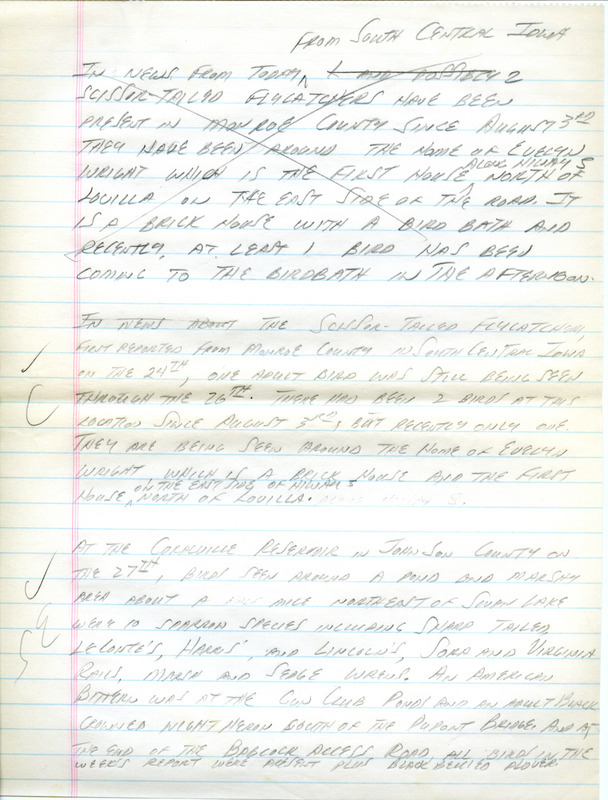 FROM SOUTH CENTRAL IOWA
IN NEWS FROM TODAY, 1 AND POSSIBLY 2
SCISSOR-TAILED FLYCATCHERS HAVE BEEN
PRESENT IN MONROE COUNTY SINCE AUGUST 3RD
THEY HAVE BEEN AROUND THE HOME OF EVELYN
WRIGHT WHICH IS THE FIRST HOUSE ALONG HIWAY 5 NORTH OF
LOVILLA ON THE EAST SIDE OF THE ROAD. IT
IS A BRICK HOUSE WITH A BIRD BATH AND
RECENTLY, AT LEAST 1 BIRD HAS BEEN
COMING TO THE BIRDBATH IN THE AFTERNOON.
IN NEWS ABOUT THE SCISSOR-TAILED FLYCATCHER,
FIRST REPORTED FROM MONROE COUNTY IN SOUTH CENTRAL IOWA
ON THE 24TH, ONE ADULT BIRD WAS STILL BEING SEEN
THROUGH THE 26TH. THERE HAD BEEN 2 BIRDS AT THIS
LOCATION SINCE AUGUST 3RD, BUT RECENTLY ONLY ONE.
THEY ARE BEING SEEN AROUND THE HOME OF EVELYN
WRIGHT WHICH IS A BRICK HOUSE AND THE FIRST
HOUSE ON THE EAST SIDE OF HIWAY 5 NORTH OF LOVILLA.
AT THE CORALVILLE RESERVOIR IN JOHNSON COUNTY ON
THE 27TH, BIRDS SEEN AROUND A POND AND MARSHY
AREA ABOUT A MILE NORTHEAST OF SWAN LAKE
WERE 10 SPARROW SPECIES INCLUDING SHARP TAILED,
LECONTE'S, HARRIS', AND LINCOLN'S, SORA AND VIRGINIA
RAILS, MARSH AND SEDGE WRENS. AN AMERICAN
BITTERN WAS AT THE GUN CLUB PONDS AND AN ADULT BLACK
CROWNED NIGHT HERON SOUTH OF THE DUPONT BRIDGE. AND AT
THE END OF THE BABCOCK ACCESS ROAD, ALL BIRDS IN THE
WEEK'S REPORT WERE PRESENT PLUS BLACK BELLIED PLOVER